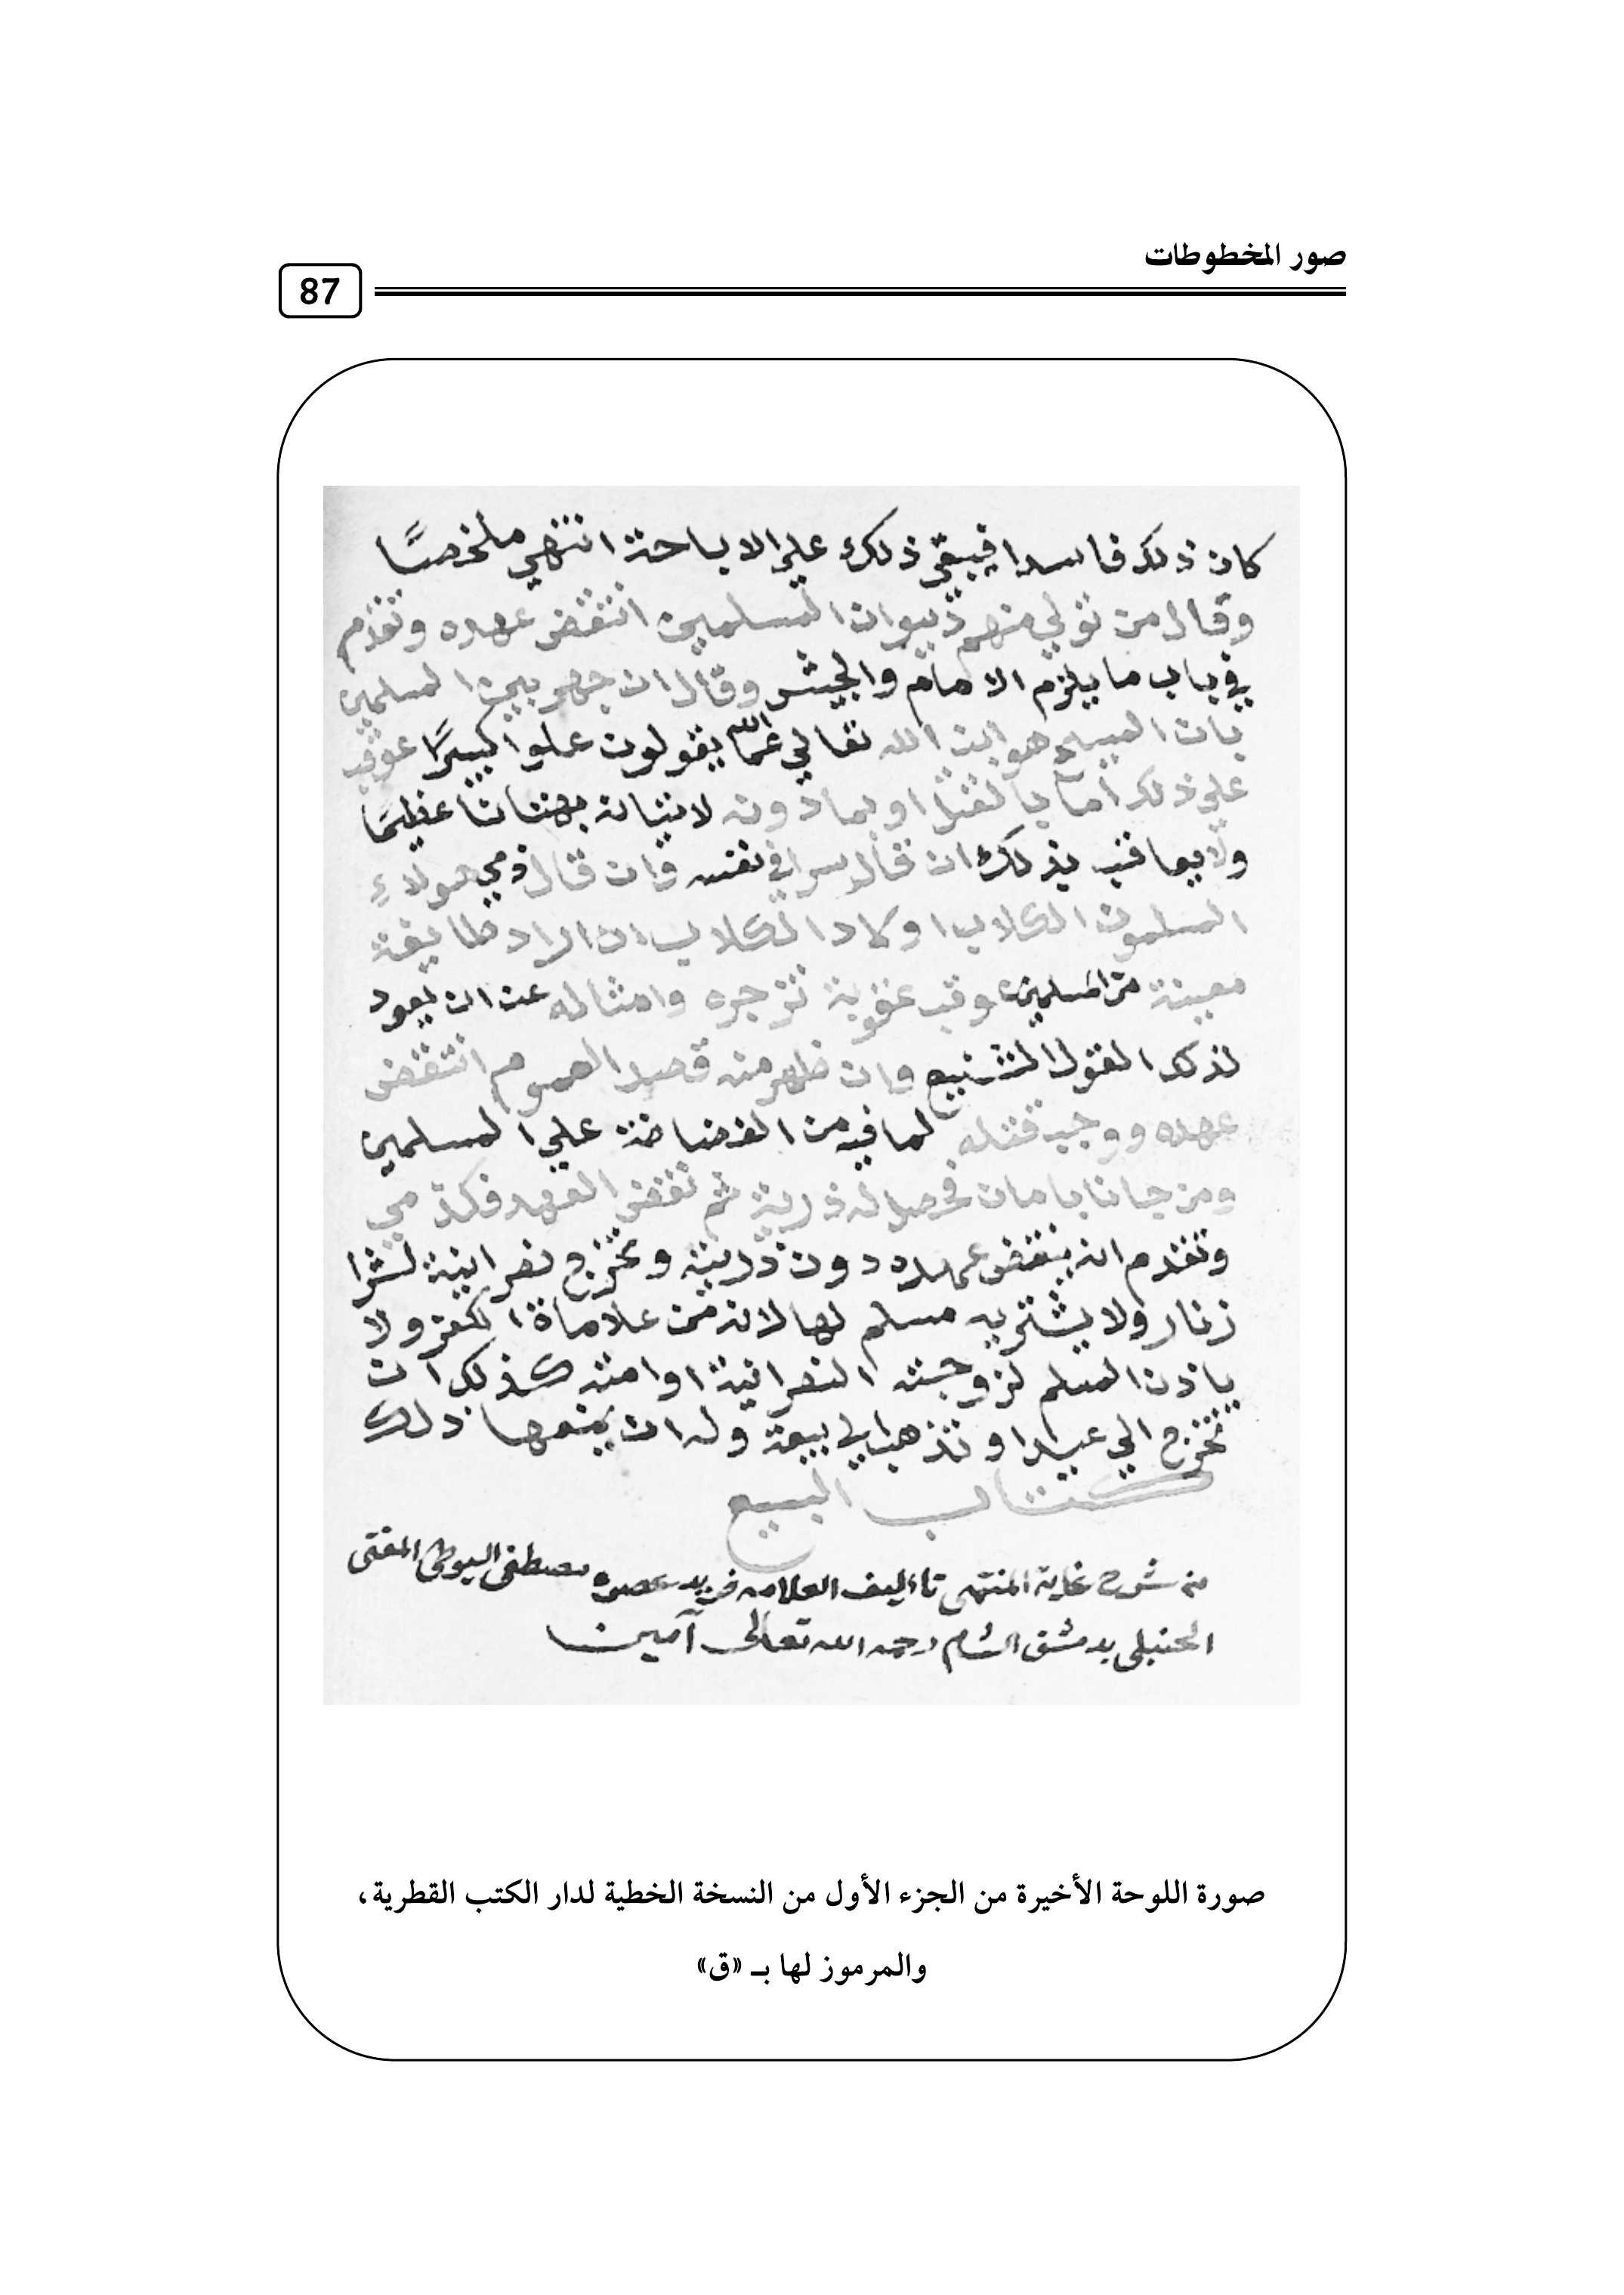 صور المخطوطات
87
كان ذلك فاسدا فيبقي ذلك علي الاباحة انتهي ملخصًا
وقال من تولي منهم ديوان المسلمين انتقض عهده وتقدم
في باب ما يلزم الامام والجيش وقال ان جهر بين المسلمين
بان المسيح هو ابن الله تعالي عما يقولون علوا كبيرًا عوقب
علي ذلك اما بالقتل او بما دونه لاتيانه بهتانا عظيمًا
ولا يعاقب بذلك ان قال سرا في نفسه وان قال ذمي هولاءِ
المسلمون الكلاب اولاد الكلاب ان اراد طايفة
معينة من المسلمين عوقب عقوبة تزجره وامثاله عن ان يعود
لذلك القول الشنيع وان ظهر منه قصد العموم انتقض
عهده ووجب قتله لما فيه من الغضاضة علي المسلمين
ومن جانا بامان فحصل له ذرية ثم نقض العهد فكذمي
وتقدم انه ينتقض عهده دون ذريته وتخرج نصرانية لشرا
زنار ولا يشتريه مسلم لها لانه من علاماة الكفر ولا
ياذن المسلم لزوجته النصرانية او امته كذلك ان
تخرج الي عيد او تذهب الي بيعة وله ان يمنعها ذلك
كتاب البيع
من شرح غاية المنتهى تاءليف العلامه فريد عصره مصطفى السيوطى المفتى
الحنبلى بدمشق الشام رحمه الله تعالى آمين
صورة اللوحة الأخيرة من الجزء الأول من النسخة الخطية لدار الكتب القطرية،
والمرموز لها بـ «ق»